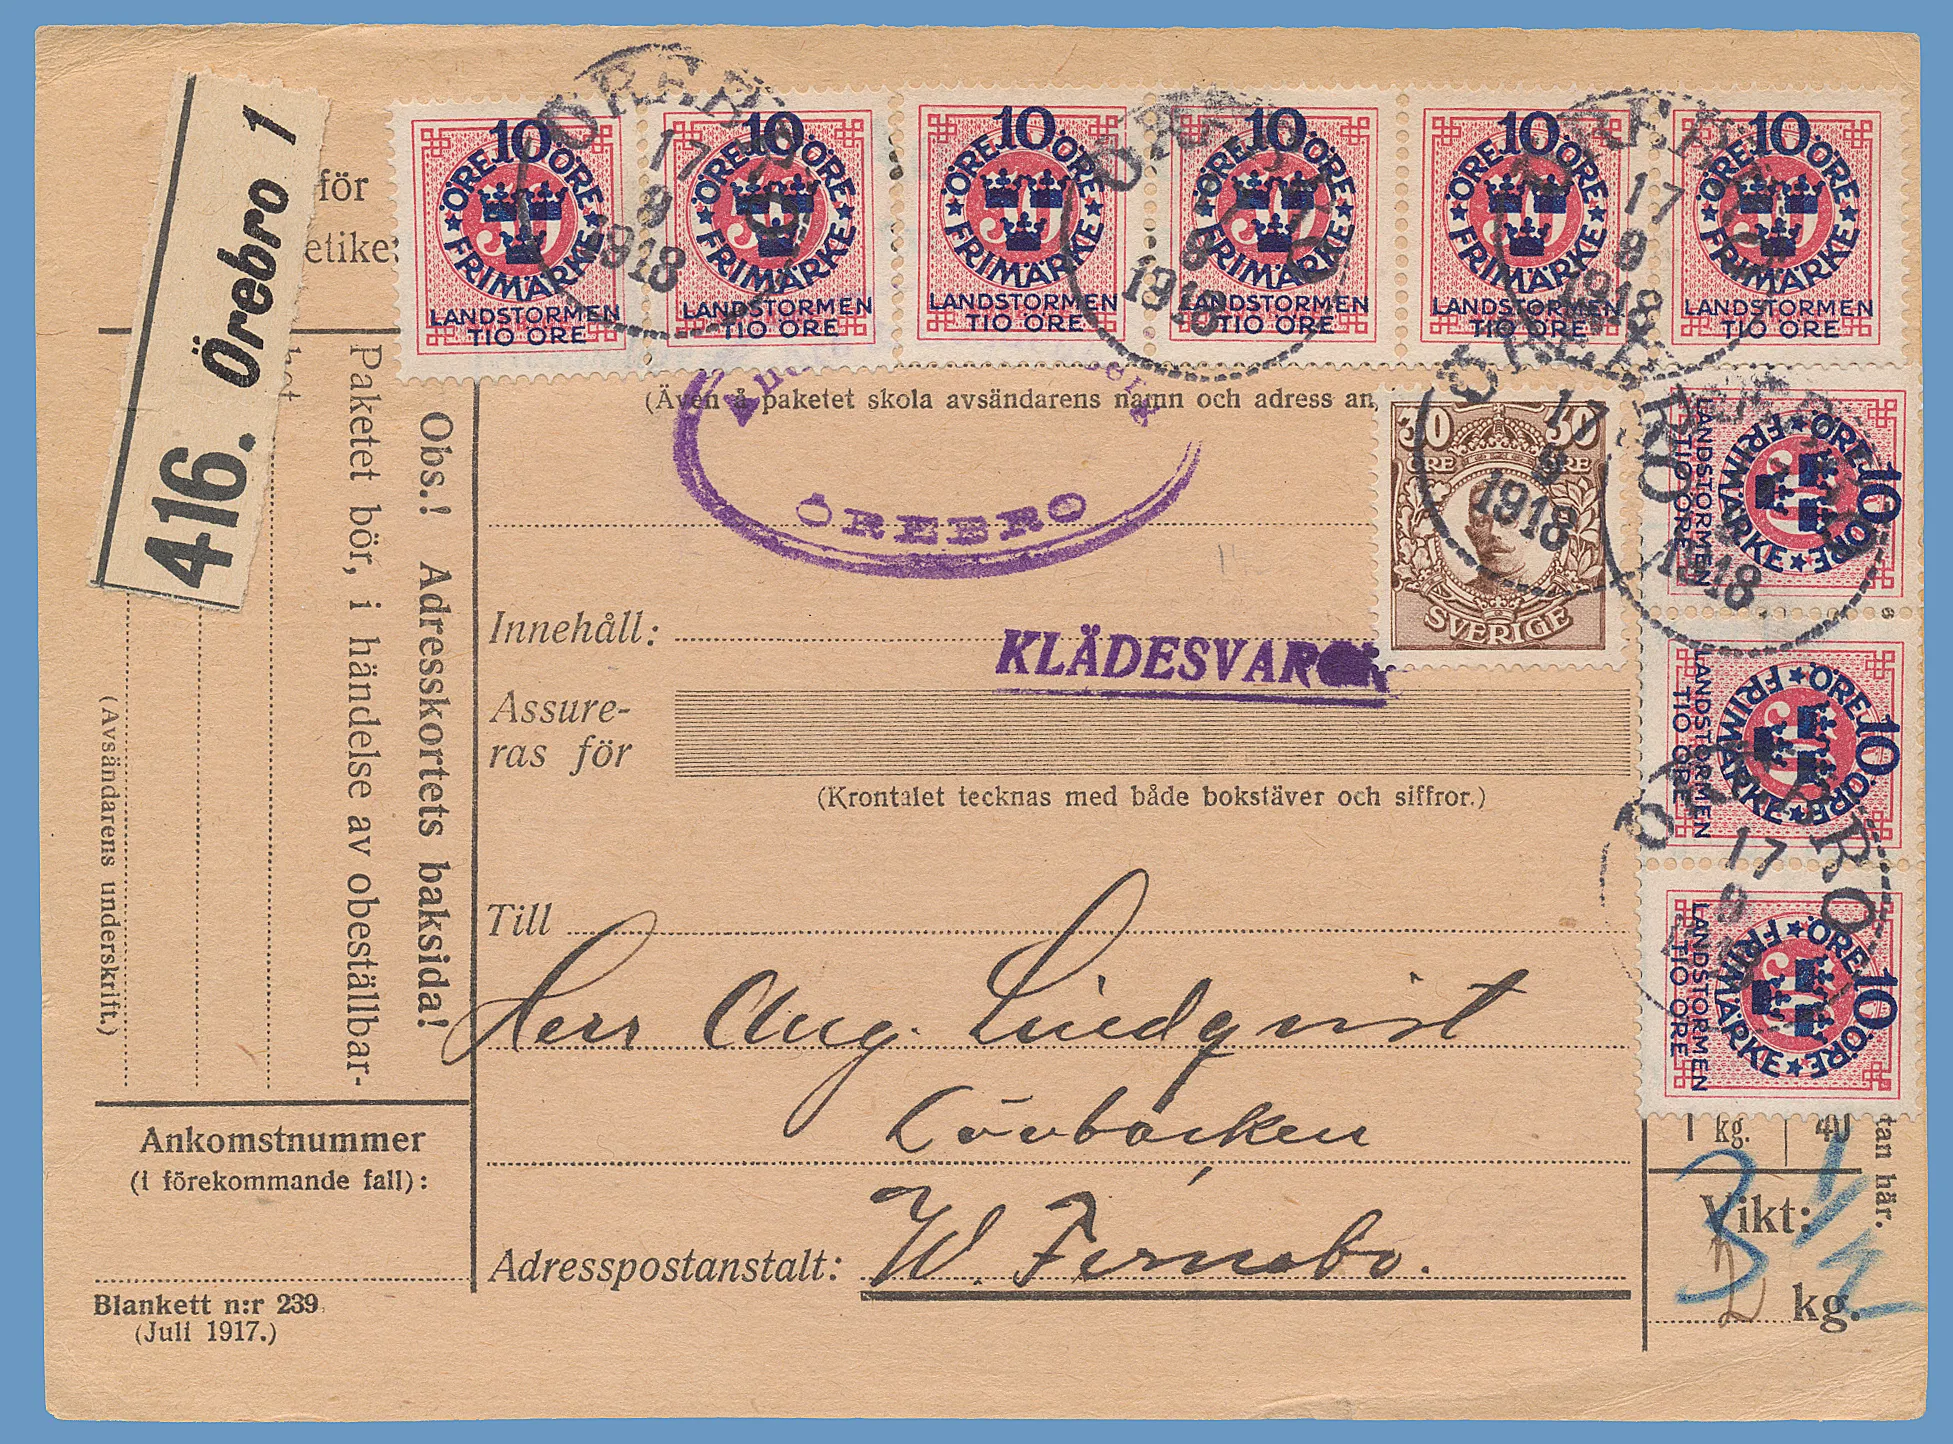 416. Örebro 1
för
etike
10
ÖRE ÖRE
FRIMÄRKE
LANDSTORMEN
TIO ÖRE
10
ÖRE ÖRE
FRIMÄRKE
LANDSTORMEN
TIO ÖRE
10
ÖRE ÖRE
FRIMÄRKE
LANDSTORMEN
TIO ÖRE
10
ÖRE ÖRE
FRIMÄRKE
LANDSTORMEN
TIO ÖRE
10
ÖRE ÖRE
FRIMÄRKE
LANDSTORMEN
TIO ÖRE
10
ÖRE ÖRE
FRIMÄRKE
LANDSTORMEN
TIO ÖRE
ÖREBRO
17
9
1918
ÖREBRO
17
9
1918
ÖREBRO
17
9
1918
(Även å paketet skola avsändarens namn och adress an
30 30
ÖRE ÖRE
SVERIGE
ÖREBRO
17
9
1918
ÖREBRO
1918
10
ÖRE ÖRE
FRIMÄRKE
LANDSTORMEN
TIO ÖRE
10
ÖRE ÖRE
FRIMÄRKE
LANDSTORMEN
TIO ÖRE
10
ÖRE ÖRE
FRIMÄRKE
LANDSTORMEN
TIO ÖRE
ÖREBRO
17
9
ÖREBRO
Innehåll:
KLÄDESVAROR
Assure-
ras för
(Krontalet tecknas med både bokstäver och siffror.)
Till
Herr Aug. Lindqvist
Lövbacken
Adresspostanstalt: W. Fernebo.
Obs.! Adresskortets baksida!
Paketet bör, i händelse av obeställbar-
(Avsändarens underskrift.)
Ankomstnummer
(i förekommande fall):
Blankett n:r 239
(Juli 1917.)
1 kg. 40
tan här.
Vikt:
3 1/2
2 kg.